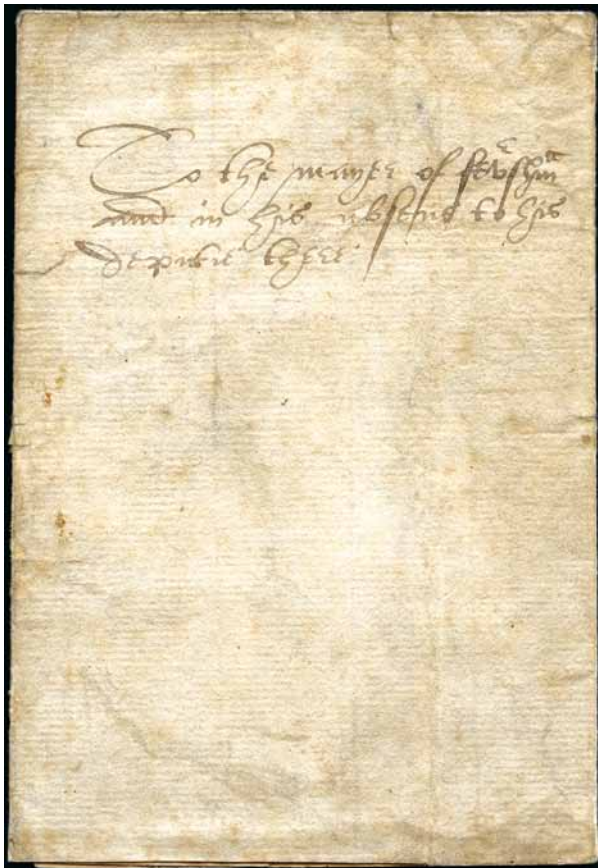 To the mayer of fev^rsh^am
and in his absens to his
deputie there